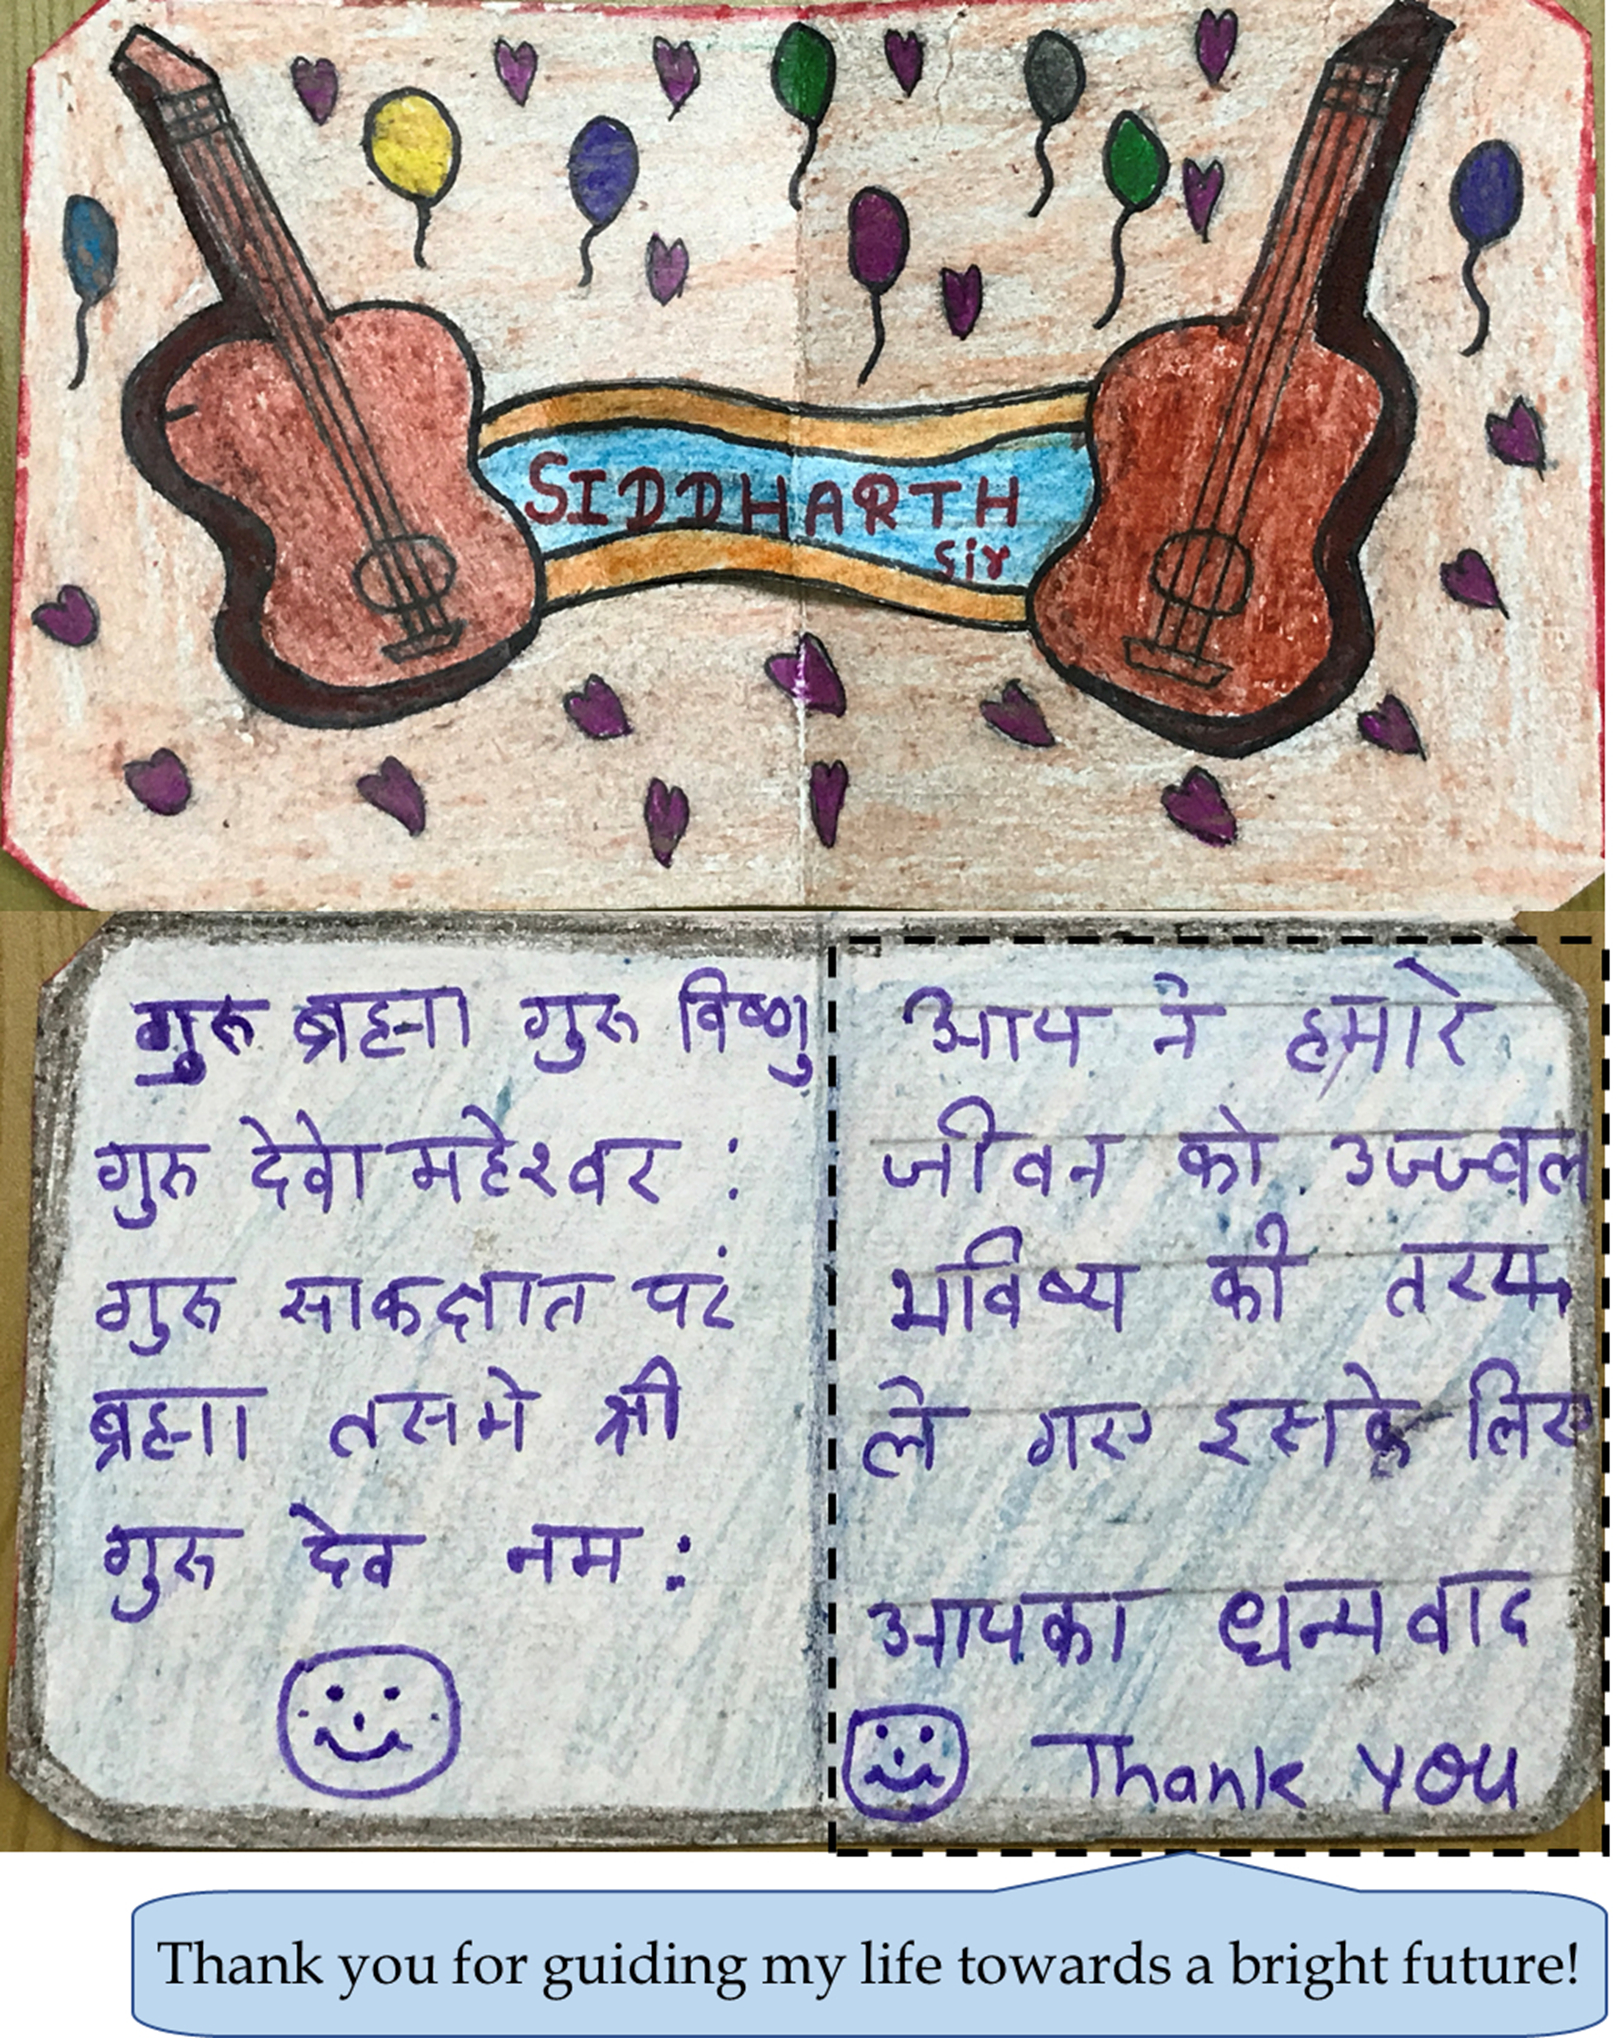 SIDDHARTH
Sir
गुरू ब्रह्मा गुरू विष्णु
गुरु देवो महेश्वर :
गुरू साकक्षात परं
ब्रह्मा तसमे श्री
गुरू देव नम :
आप ने हमारे
जीवन को उज्ज्वल
भविष्य की तरफ
ले गए इसके लिए
आपका धन्मवाद
Thank you
Thank you for guiding my life towards a bright future!